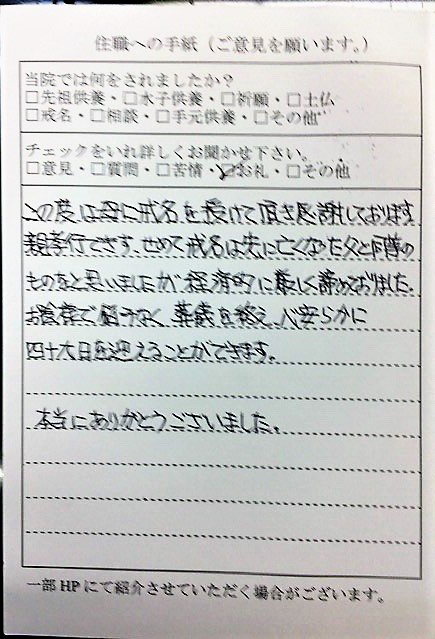 住職への手紙（ご意見を願います。）
当院では何をされましたか？
□先祖供養・□水子供養・□祈願・□土仏
□戒名・□相談・□手元供養・□その他
チェックをいれ詳しくお聞かせ下さい。
□意見・□質問・□苦情・☑お礼・□その他
この度は母に戒名を授けて頂き感謝しております。
親孝行できず、せめて戒名は先に亡くなった父と同等の
ものをと思いましたが経済的に厳しく諦めておりました。
お蔭様で悩みなく、葬儀を終え、心安らかに
四十九日を迎えることができます。
本当にありがとうございました。
一部HPにて紹介させていただく場合がございます。